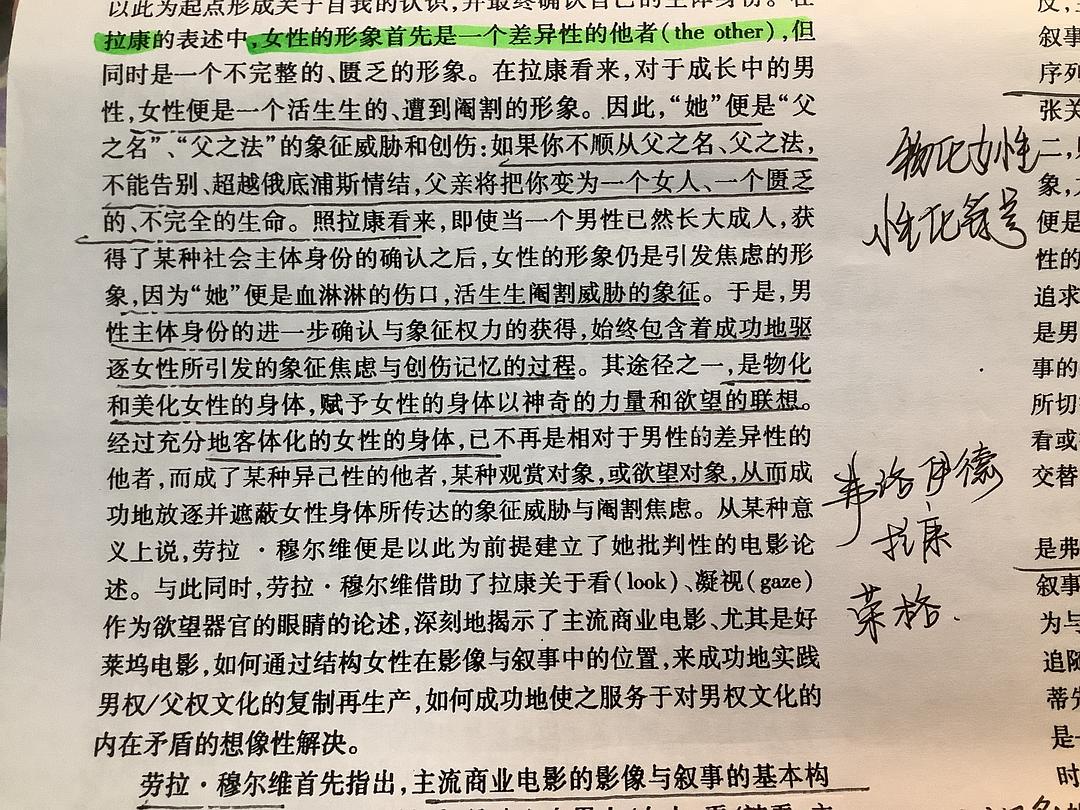 以此为起点形成关于自我的认识,并最终确认自己的主体身份。在
拉康的表述中,女性的形象首先是一个差异性的他者(the other),但
同时是一个不完整的、匮乏的形象。在拉康看来,对于成长中的男
性,女性便是一个活生生的、遭到阉割的形象。因此,“她”便是“父
之名”、“父之法”的象征威胁和创伤:如果你不顺从父之名、父之法,
不能告别、超越俄底浦斯情结,父亲将把你变为一个女人、一个匮乏
的、不完全的生命。照拉康看来,即使当一个男性已然长大成人,获
得了某种社会主体身份的确认之后,女性的形象仍是引发焦虑的形
象,因为“她”便是血淋淋的伤口,活生生阉割威胁的象征。于是,男
性主体身份的进一步确认与象征权力的获得,始终包含着成功地驱
逐女性所引发的象征焦虑与创伤记忆的过程。其途径之一,是物化
和美化女性的身体,赋予女性的身体以神奇的力量和欲望的联想。
经过充分地客体化的女性的身体,已不再是相对于男性的差异性的
他者,而成了某种异己性的他者,某种观赏对象,或欲望对象,从而成
功地放逐并遮蔽女性身体所传达的象征威胁与阉割焦虑。从某种意
义上说,劳拉·穆尔维便是以此为前提建立了她批判性的电影论
述。与此同时,劳拉·穆尔维借助了拉康关于看(look)、凝视(gaze)
作为欲望器官的眼睛的论述,深刻地揭示了主流商业电影、尤其是好
莱坞电影,如何通过结构女性在影像与叙事中的位置,来成功地实践
男权/父权文化的复制再生产,如何成功地使之服务于对男权文化的
内在矛盾的想像性解决。
劳拉·穆尔维首先指出,主流商业电影的影像与叙事的基本构
物化女性
性化符号
弗洛伊德
拉康
荣格.
叙事
序列
张关
二,
象,
便是
性的
追求
是男
事的
所切
看或
交替
是弗
叙事
为与
追随
蒂
是一
时